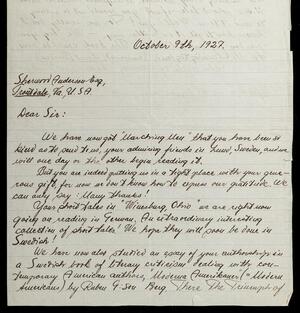 October 9th, 1927.
Sherwood Anderson Esq,
Troutdale, Va, U.S.A.
Dear Sir:
We have now got "Marching Men" that you have been so
kind as to send us, your admiring friends in Lund, Sweden, and we
will one day or the other begin reading it.
But you are indeed putting us in a tight place with your gene-
rous gift, for now we don't know how to express our gratitude. We can
only say: Many thanks!
Your short tales in "Winesburg, Ohio" we are right now
going on reading in German. An extraordinary interesting
collection of short tales! We hope they will soon be done in
Swedish!
We have now also studied an essay of your authorship in
a Swedish book of literary criticism dealing with con-
temporary American authors, "Moderna Amerikaner" ("Modern
Americans") by Ruben G:son Berg. There the "Triumph of